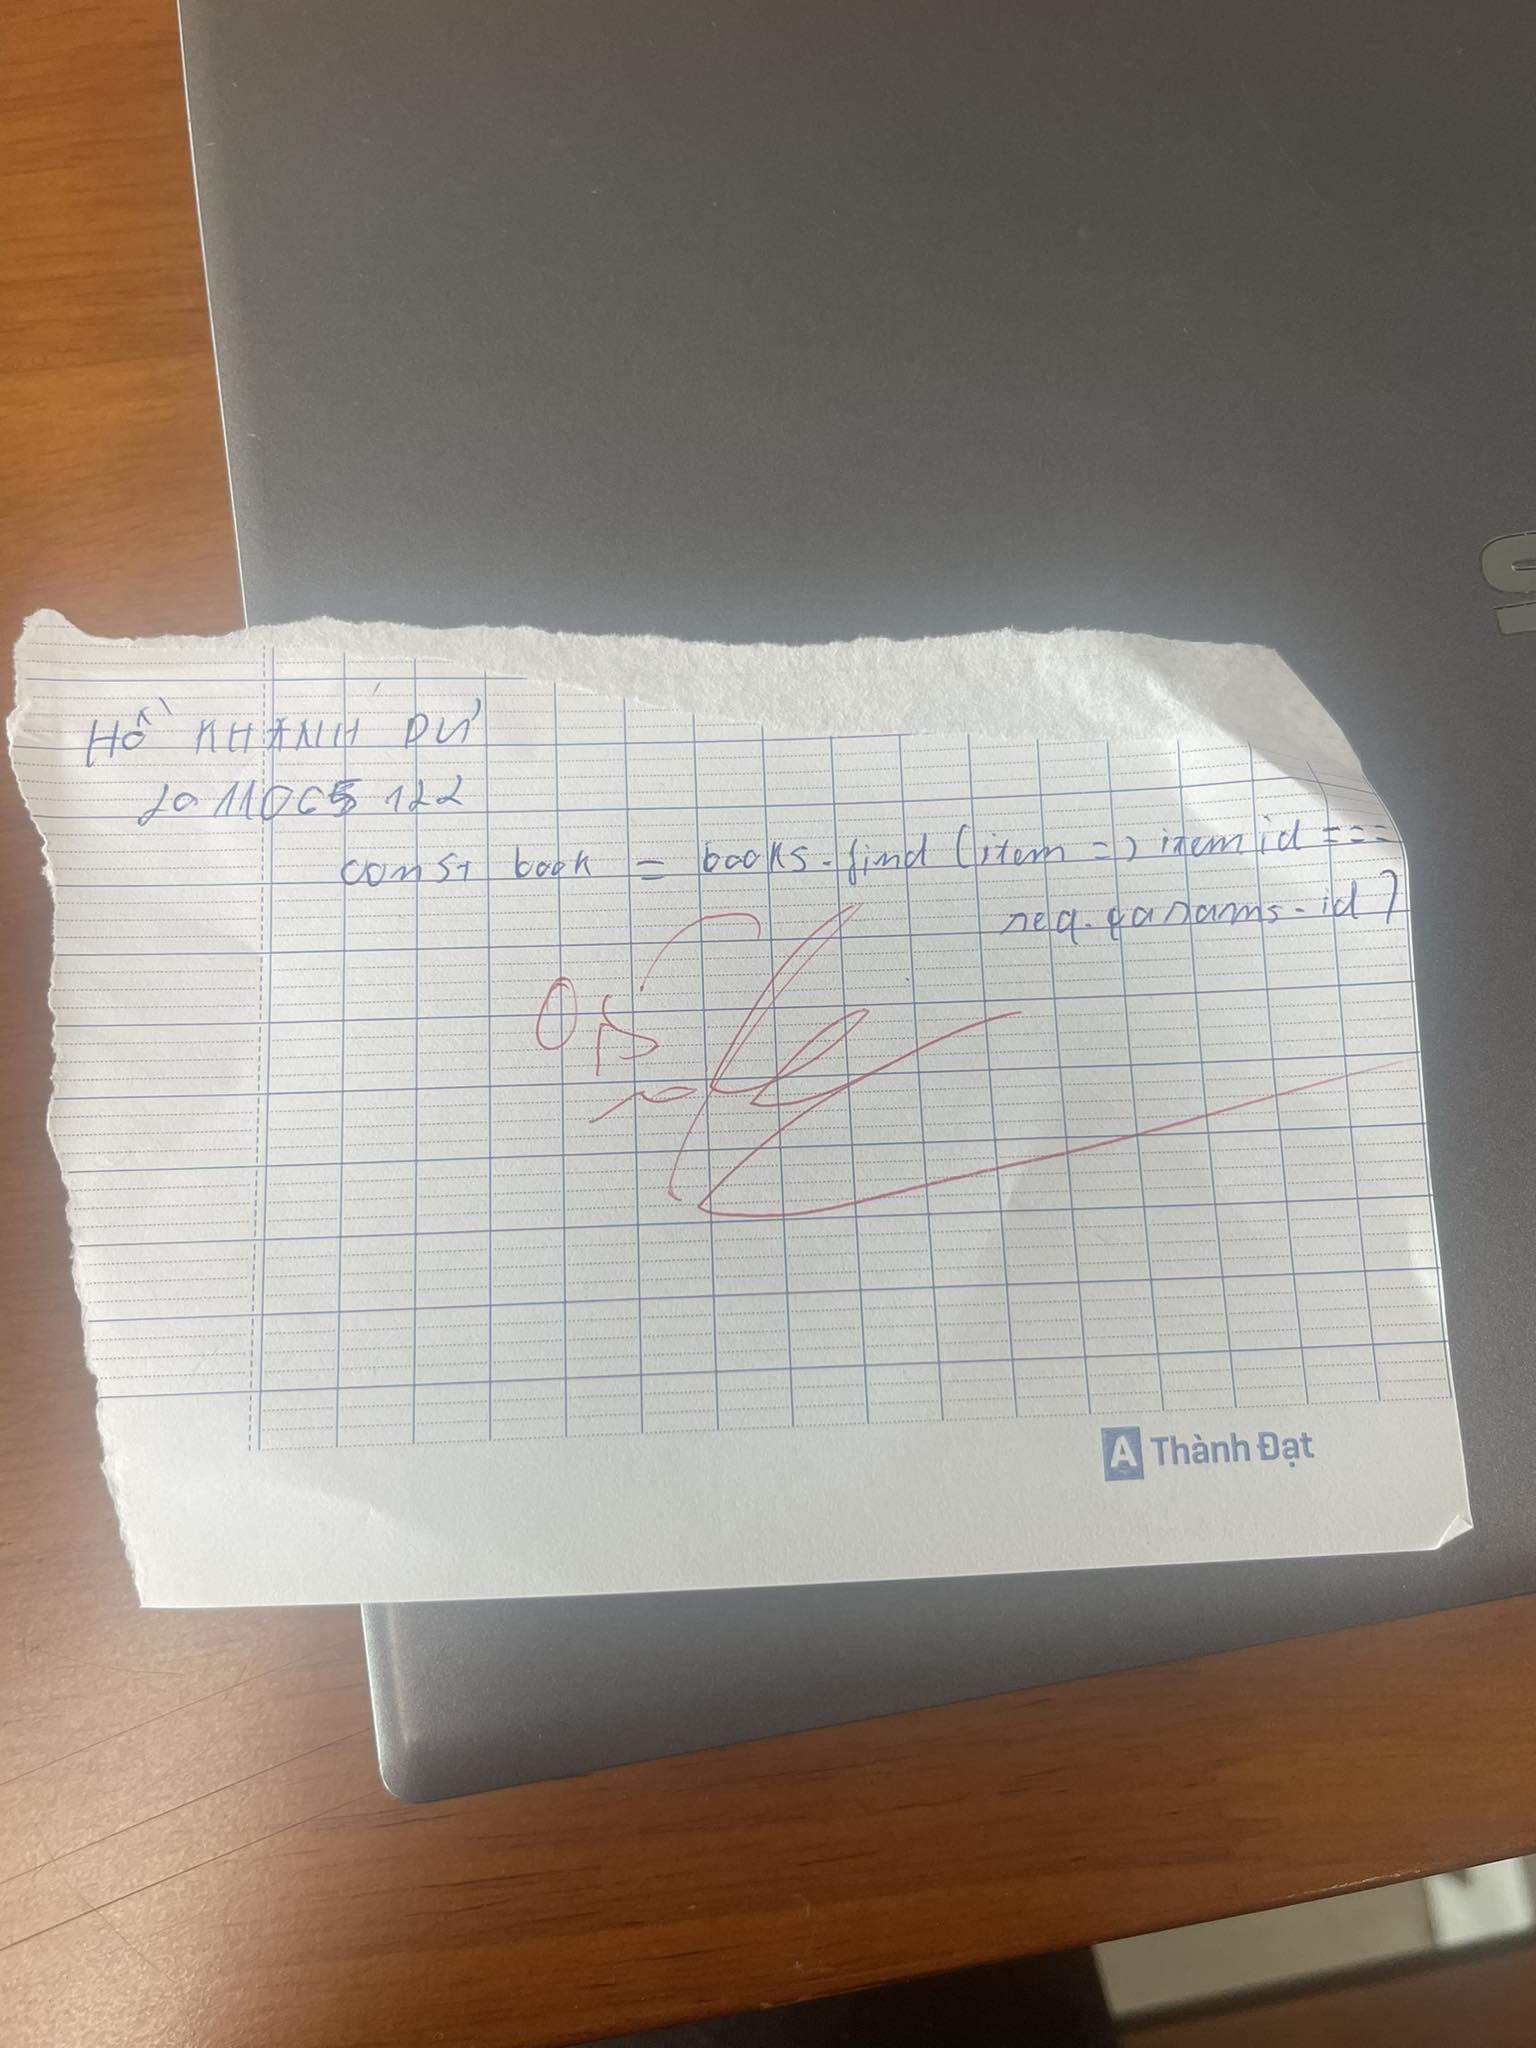 HỒ KHÁNH DƯ
2011OC5122
const book = books.find (item => item id ===
req.params.id)
A Thành Đạt